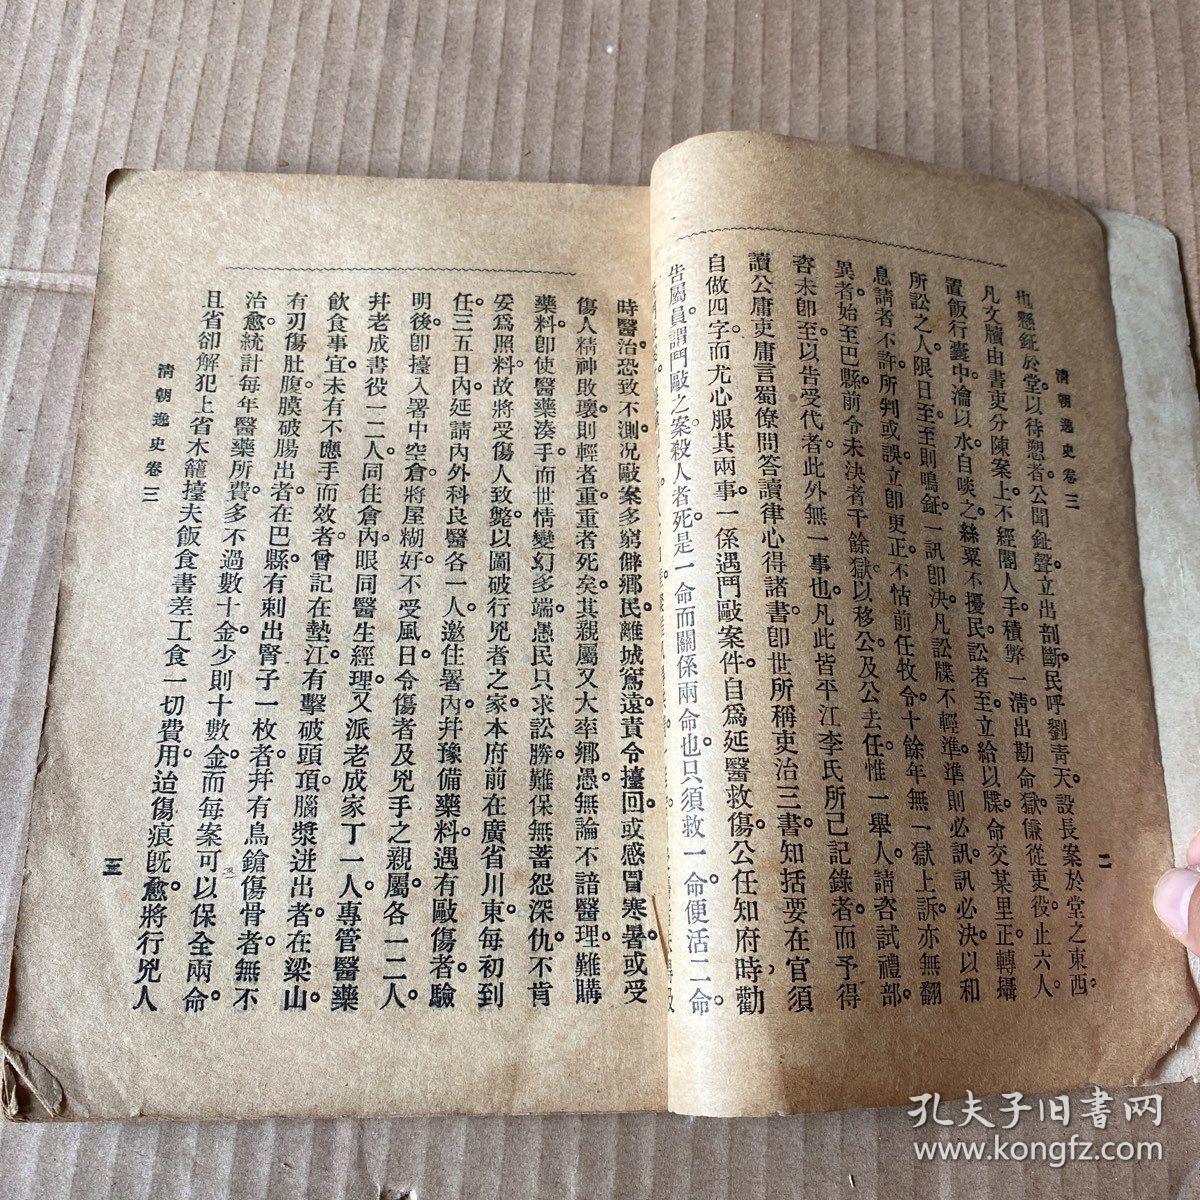 清朝逸史 卷三
二
也懸鉦於堂以待愬者公聞鉦聲立出剖斷民呼劉青天設長案於堂之東西。
凡文牘由書吏分陳案上不經閽人手積弊一清出勘命獄傔從吏役止六人
置飯行囊中淪以水自啖之絲粟不擾民訟者至立給以牒命交某里正轉攝
所訟之人限日至至則鳴鉦一訊卽決凡訟牒不輕準準則必訊訊必決以和
息請者不許所判或誤立卽更正不怙前任牧令十餘年無一獄上訴亦無翻
異者始至巴縣前令未決者千餘獄以移公及公去任惟一舉人請咨試禮部。
咨未卽至以告受代者此外無一事也凡此皆平江李氏所己記錄者而予得
讀公庸吏庸言蜀僚問答讀律心得諸書卽世所稱吏治三書知括要在官須
自做四字而尤心服其兩事一係遇鬥毆案件自爲延醫救傷公任知府時勸
告屬員謂鬥毆之案殺人者死是一命而關係兩命也只須救一命便活二命
時醫治恐致不測况毆案多窮僻鄉民離城窵遠責令擡回或感冒寒暑或受
傷人精神敗壞則輕者重重者死矣其親屬又大率鄉愚無論不諳醫理難購
藥料卽使醫藥湊手而世情變幻多端愚民只求訟勝難保無蓄怨深仇不肯
妥爲照料故將受傷人致斃以圖破行兇者之家本府前在廣省川東每初到
任三五日內延請內外科良醫各一人邀住署內幷豫備藥料遇有毆傷者驗
明後卽擡入署中空倉將屋糊好不受風日令傷者及兇手之親屬各一二人
幷老成書役一二人同住倉內眼同醫生經理又派老成家丁一人專管醫藥
飲食事宜未有不應手而效者曾記在墊江有擊破頭頂腦漿迸出者在梁山
有刃傷肚腹膜破腸出者在巴縣有刺出腎子一枚者幷有鳥鎗傷骨者無不
治愈統計每年醫藥所費多不過數十金少則十數金而每案可以保全兩命
且省卻解犯上省木籠擡夫飯食書差工食一切費用迨傷痕旣愈將行兇人
清朝逸史 卷三
三
孔夫子旧書网
www.kongfz.com